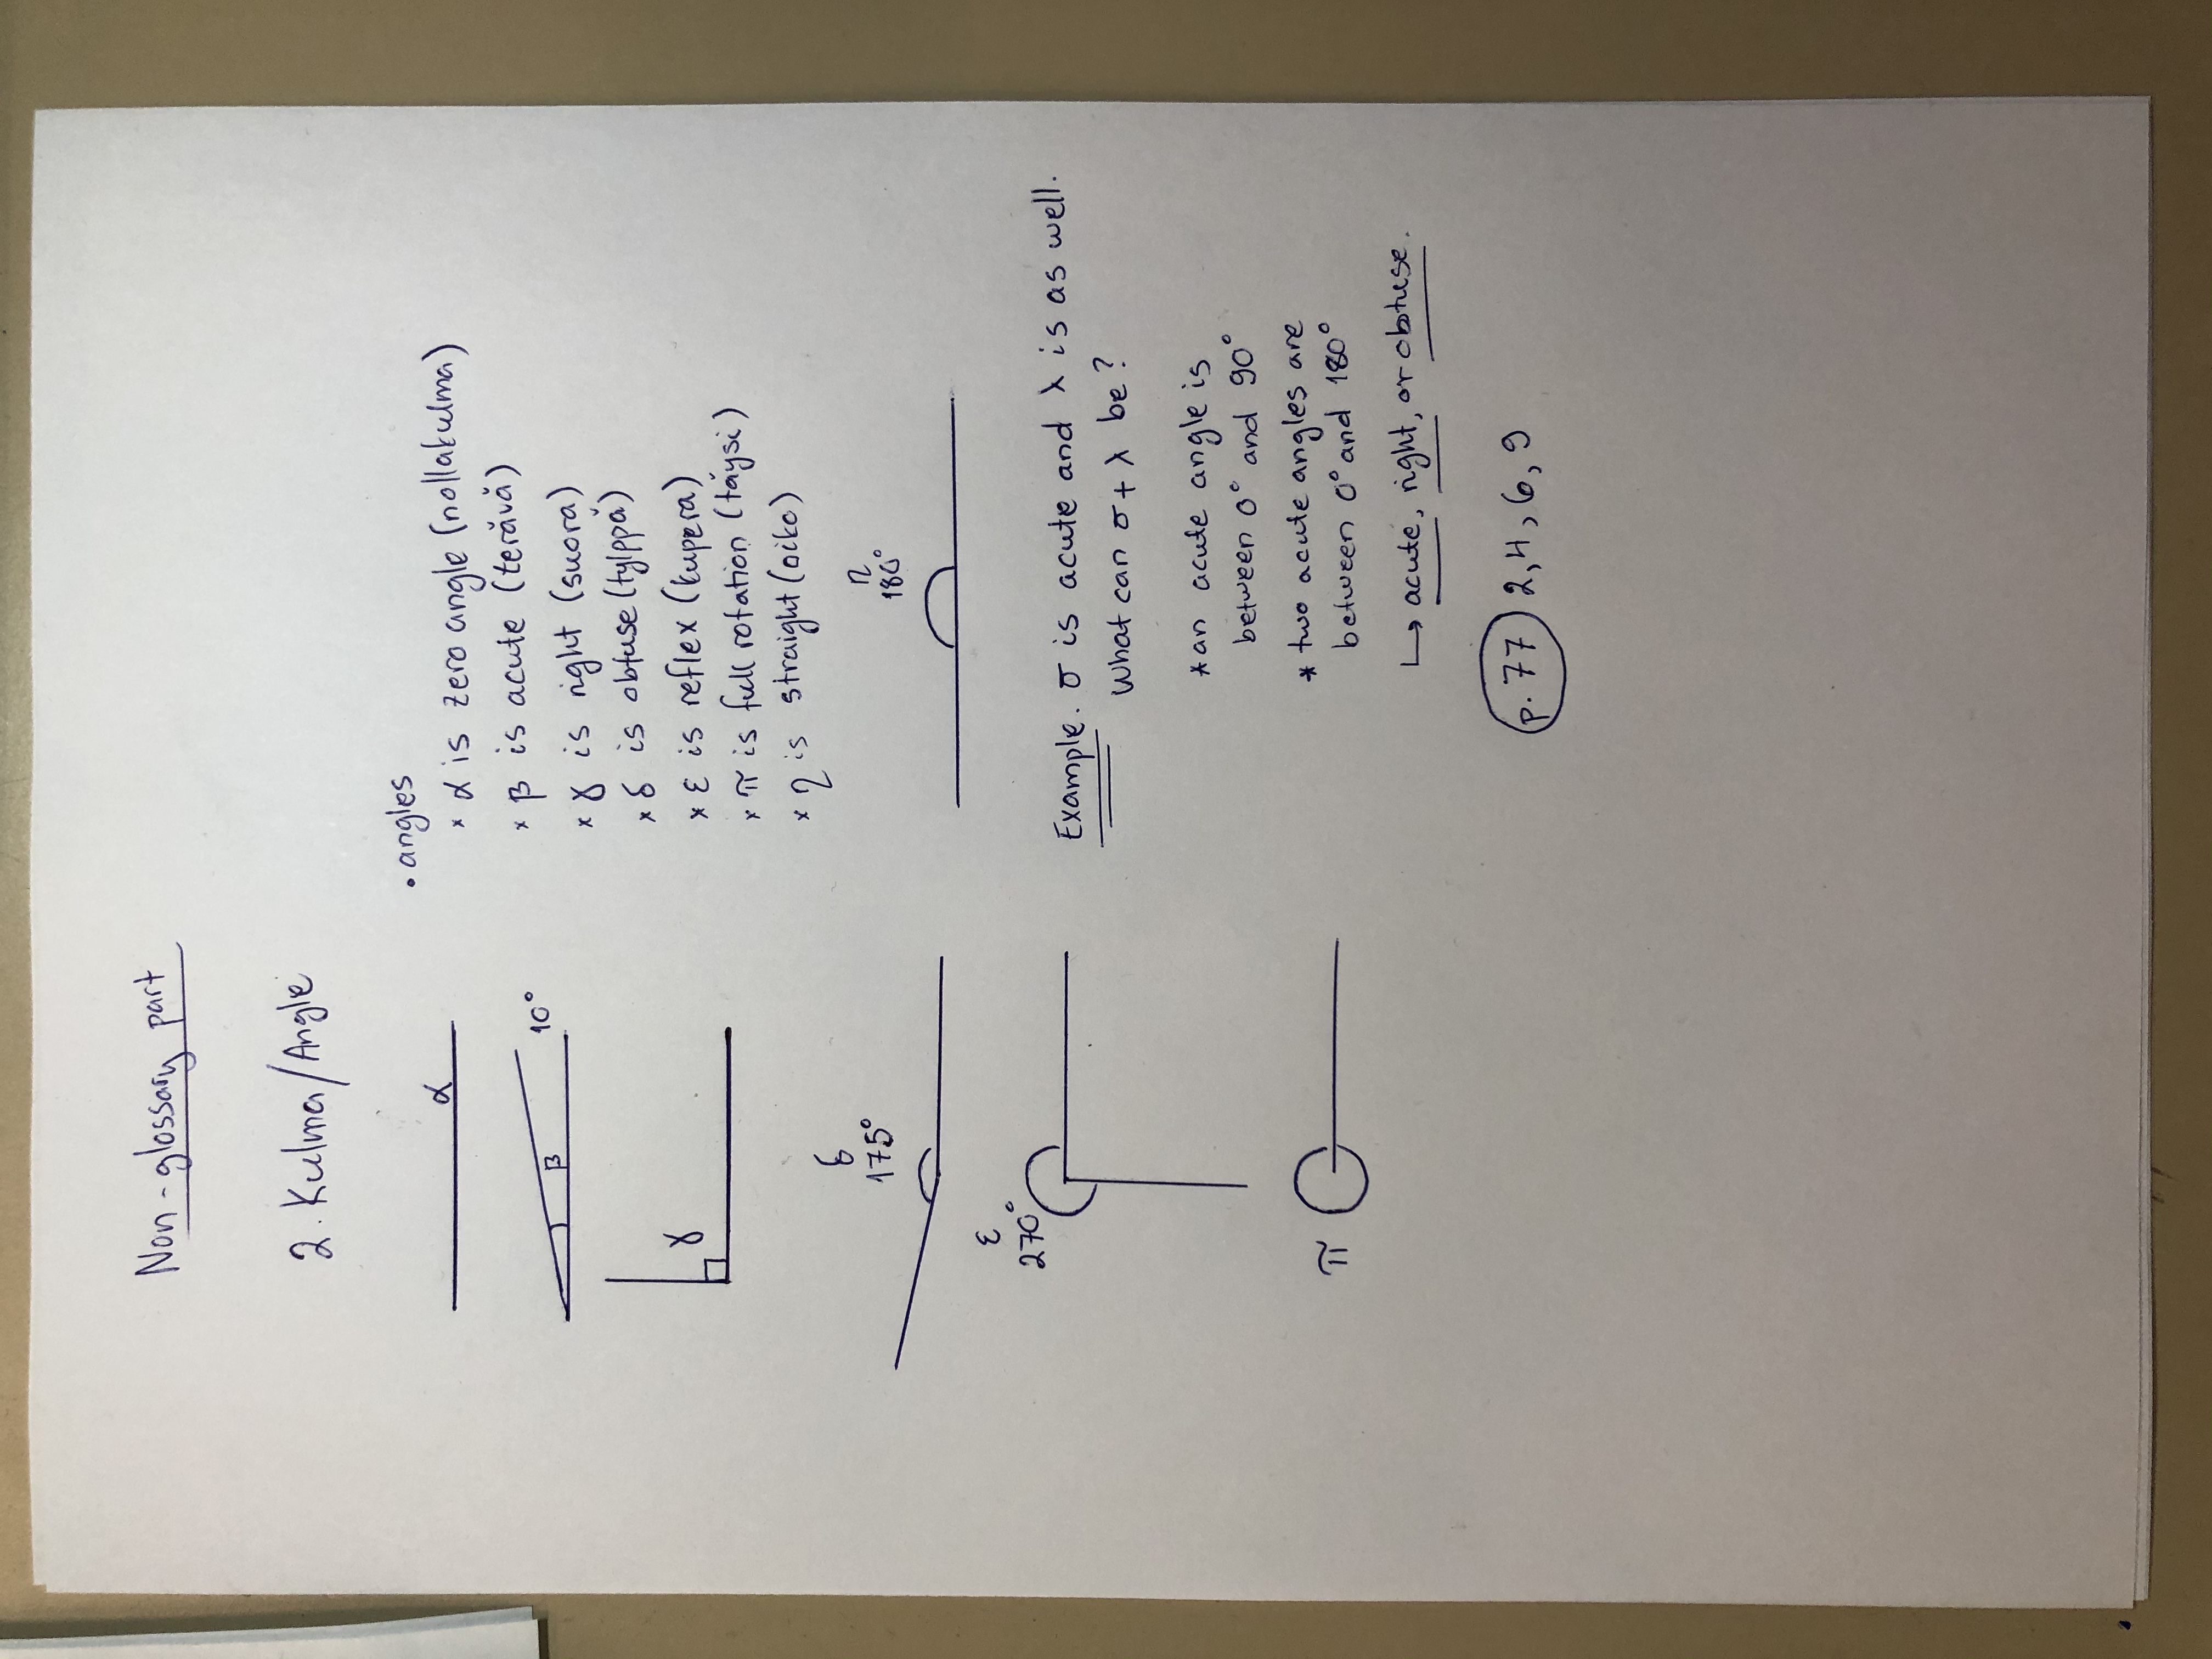 Non-glossary part
2. Kulma/Angle
α
β
10°
γ
δ
175°
ε
270°
π
• angles
× α is zero angle (nollakulma)
× β is acute (terävä)
× γ is right (suora)
× δ is obtuse (tylppä)
× ε is reflex (kupera)
× π is full rotation (täysi)
× η is straight (oiko)
η
180°
Example. σ is acute and λ is as well.
What can σ + λ be?
* an acute angle is
between 0° and 90°
* two acute angles are
between 0° and 180°
↳ acute, right, or obtuse.
p. 77 2, 4, 6, 9